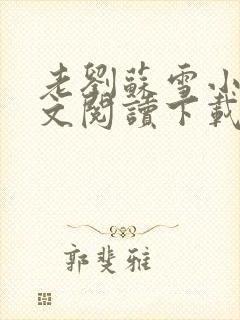 老劉蘇雪小
文閱讀下載
郭斐雅